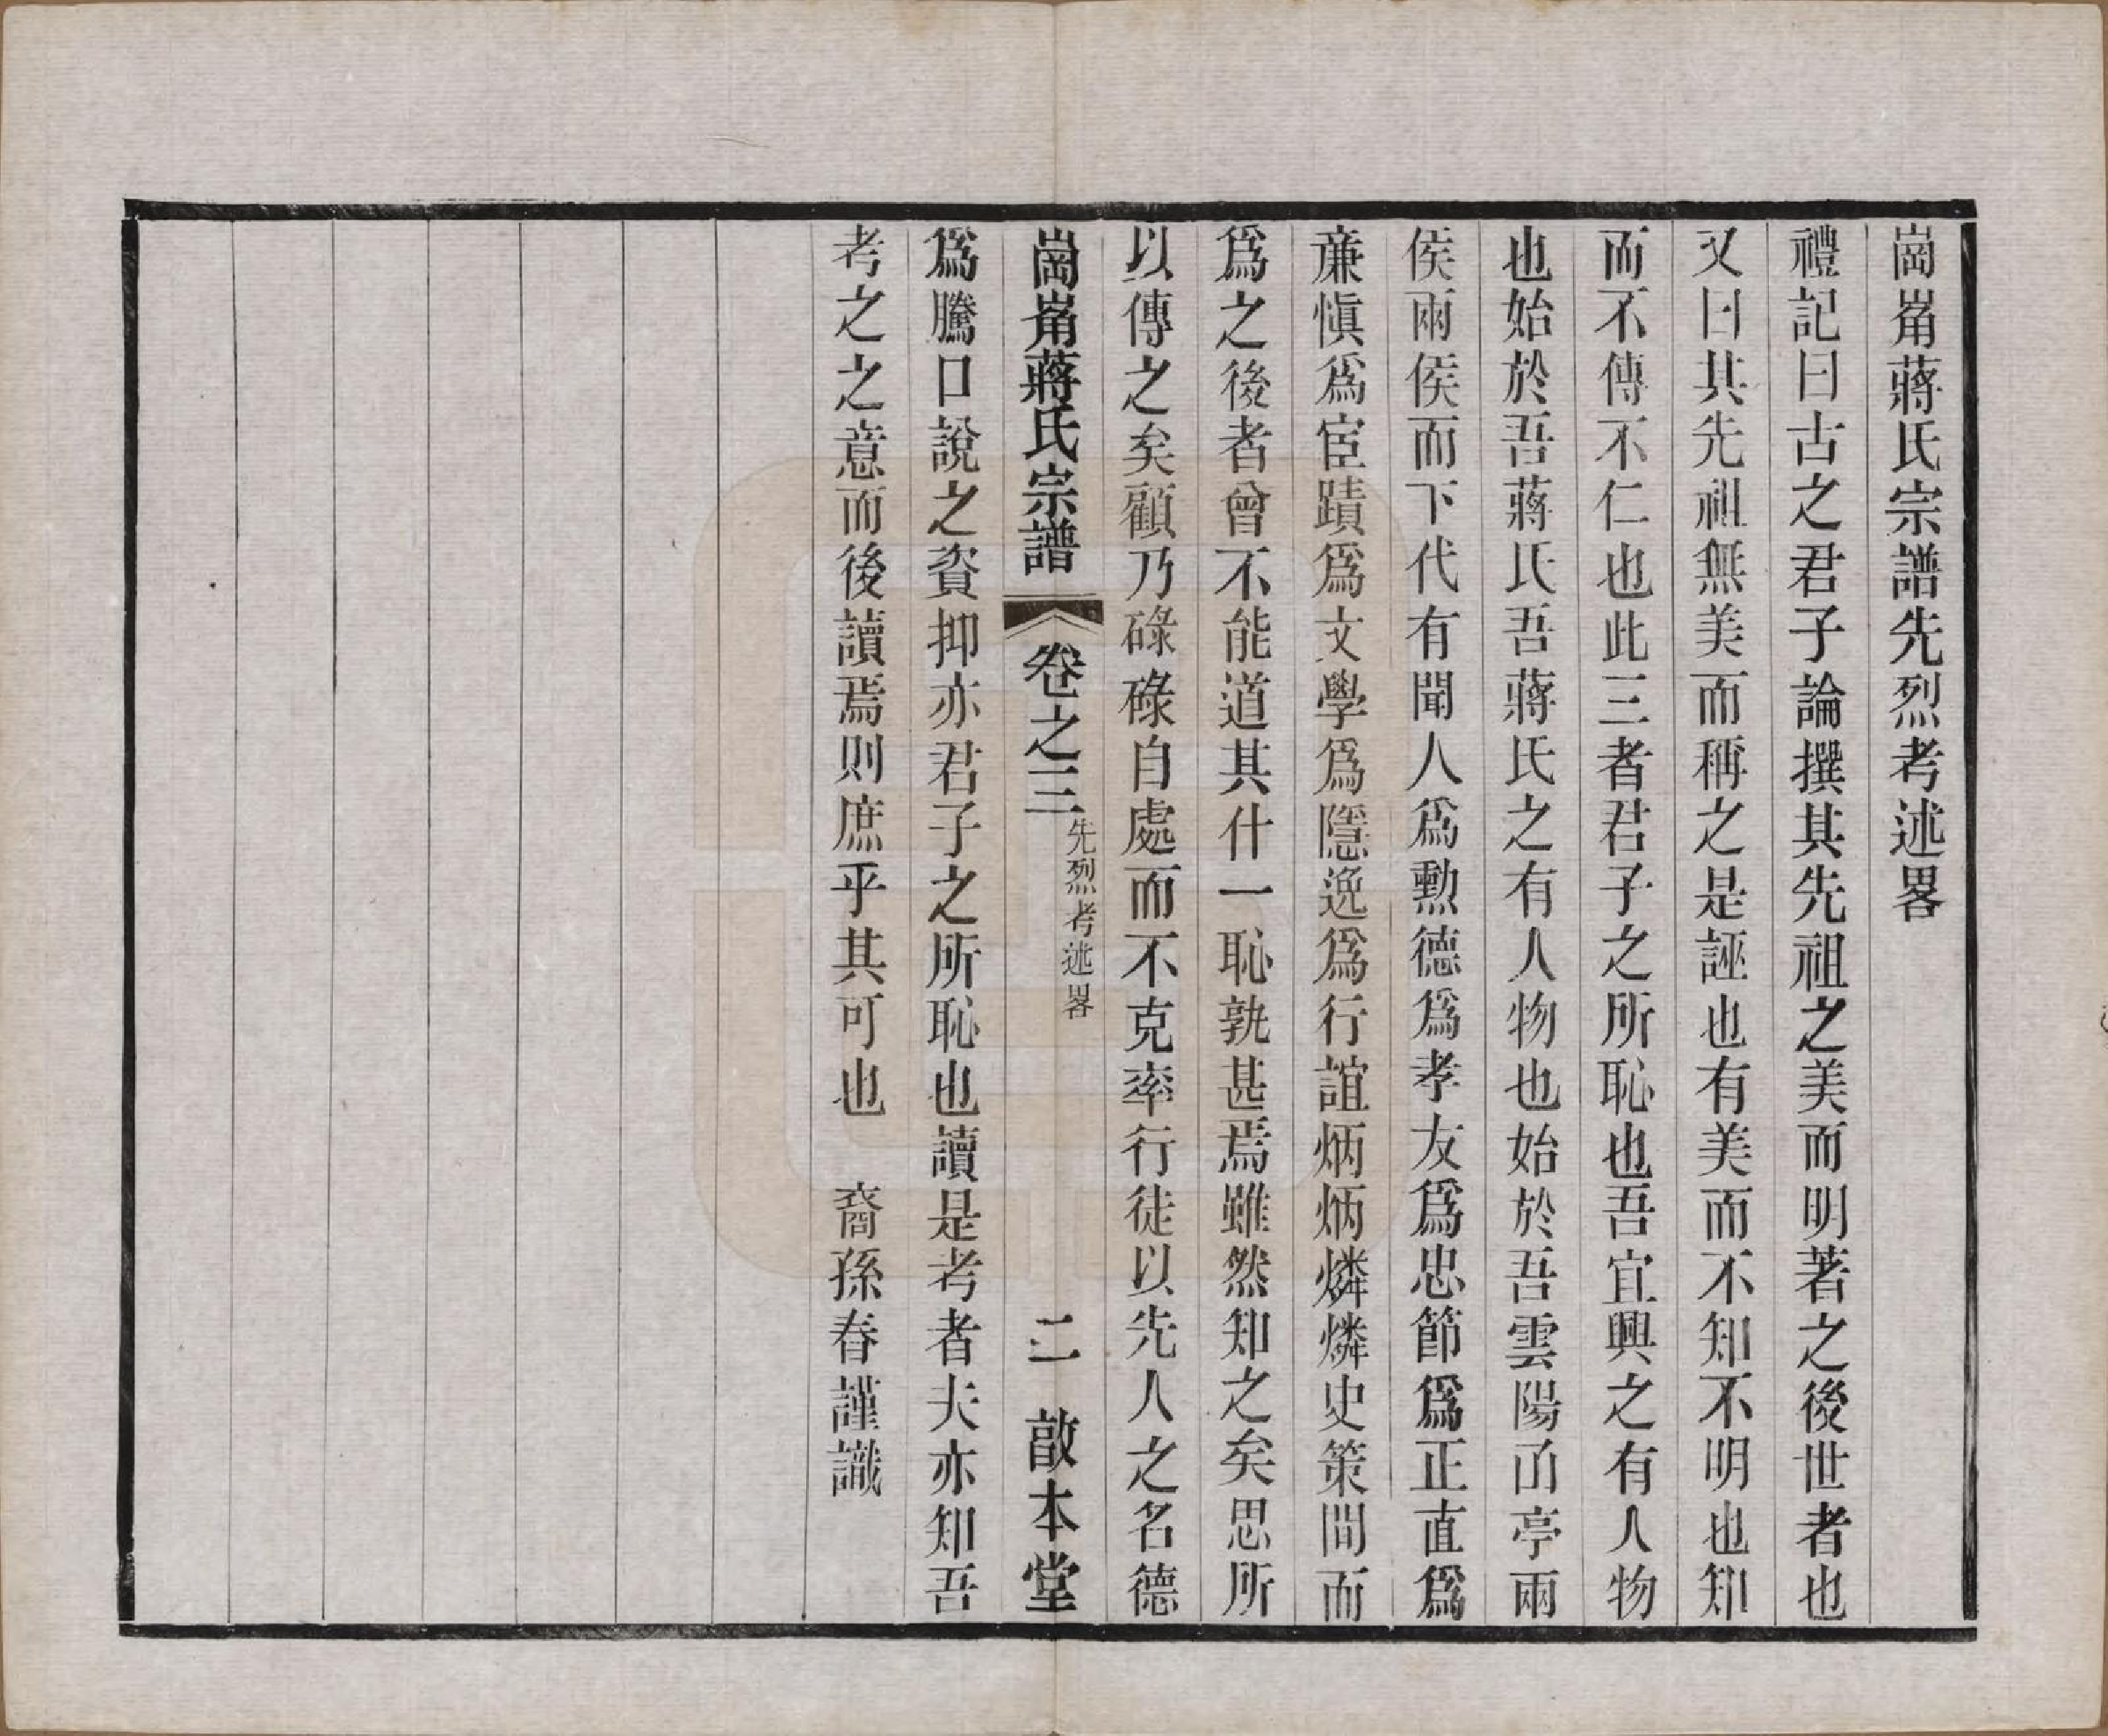 崗𡹬蔣氏宗譜先烈考述畧
禮記曰古之君子論撰其先祖之美而明著之後世者也
又曰其先祖無美而稱之是誣也有美而不知不明也知
而不傳不仁也此三者君子之所恥也吾宜興之有人物
也始於吾蔣氏吾蔣氏之有人物也始於吾雲陽㓙亭兩
侯兩侯而下代有聞人爲勲德爲孝友爲忠節爲正直爲
亷愼爲宦蹟爲文學爲隱逸爲行誼炳炳燐燐史策間而
爲之後者曾不能道其什一恥孰甚焉雖然知之矣思所
以傳之矣顧乃碌碌自處而不克率行徒以先人之名德
崗𡹬蔣氏宗譜 卷之三 先烈考述畧 二 敨本堂
爲騰口說之資抑亦君子之所恥也讀是考者夫亦知吾
考之之意而後讀焉則庶乎其可也 裔孫春謹識